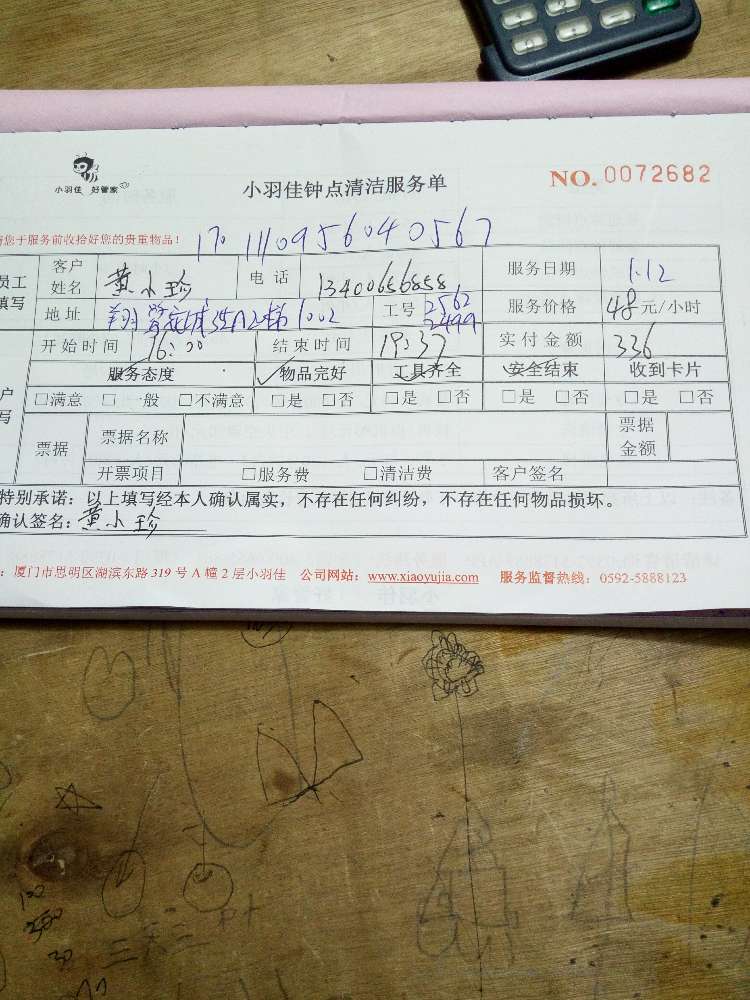 小羽佳 好管家
小羽佳钟点清洁服务单
NO. 0072682
您于服务前收拾好您的贵重物品！
1701110956040567
员工填写 客户姓名 黄小珍 电话 13400656858 服务日期 1.12
地址 35 1002 工号 2562 2499 服务价格 48元/小时
开始时间 16:00 结束时间 19:37 实付金额 336
服务态度 物品完好 工具齐全 安全结束 收到卡片
户写 □满意 □一般 □不满意 □是 □否 □是 □否 □是 □否 □是 □否
票据 票据名称 票据金额
开票项目 □服务费 □清洁费 客户签名
特别承诺：以上填写经本人确认属实，不存在任何纠纷，不存在任何物品损坏。
确认签名：黄小珍
：厦门市思明区湖滨东路 319 号 A 幢 2 层小羽佳 公司网站：www.xiaoyujia.com 服务监督热线：0592-5888123